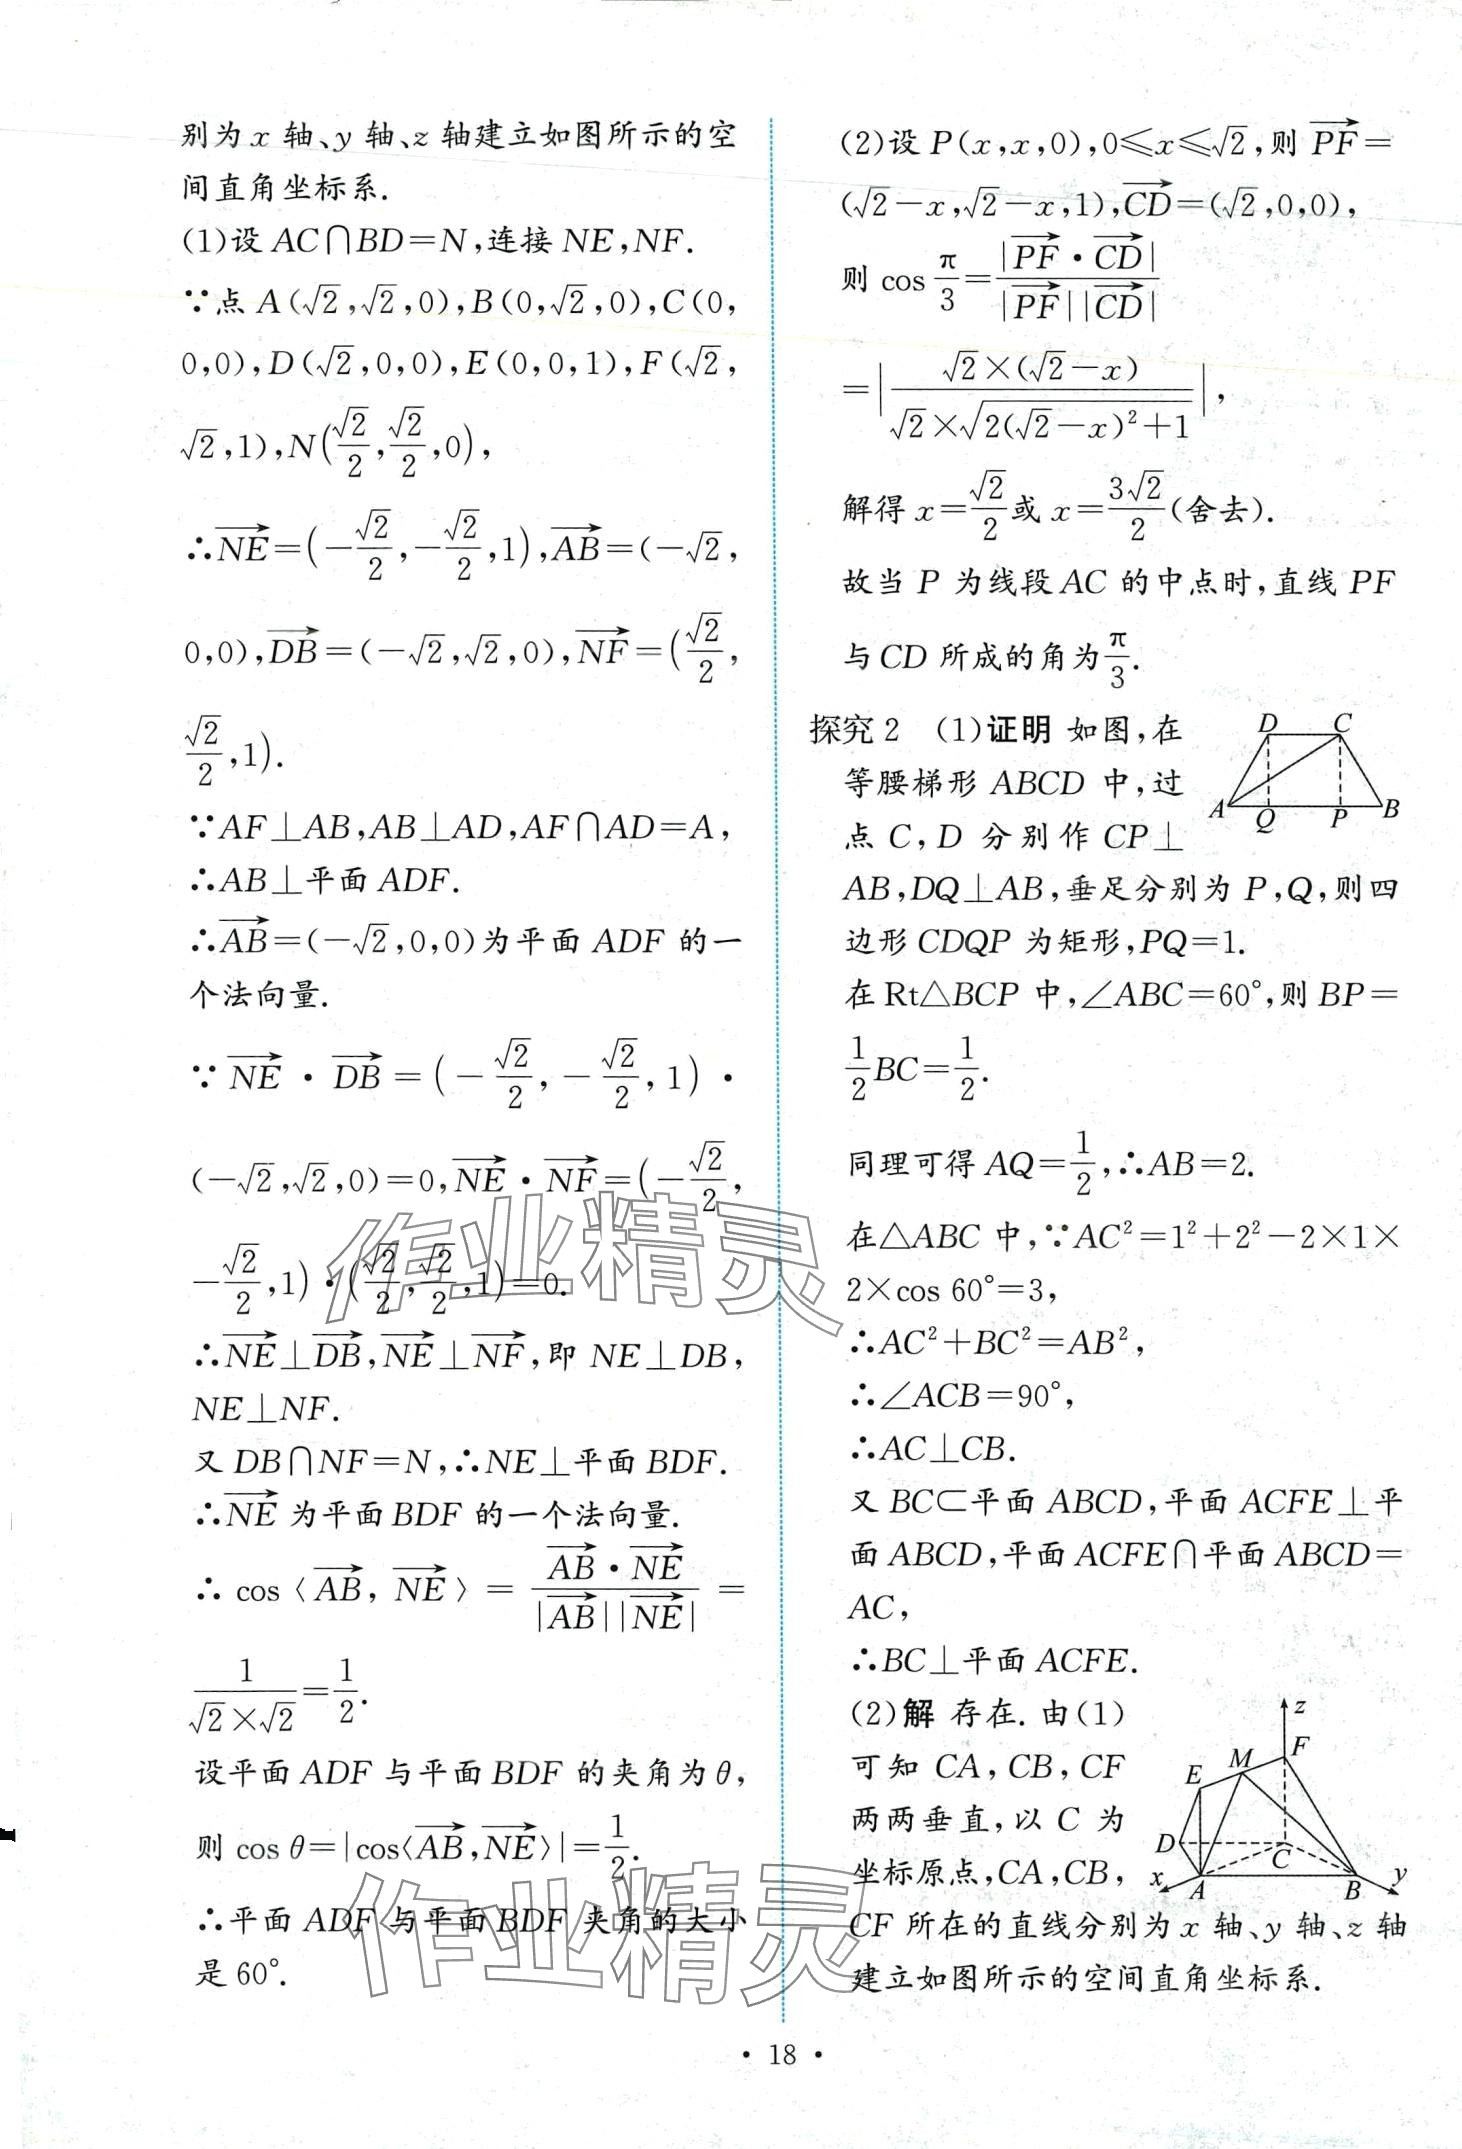 别为 x 轴、y 轴、z 轴建立如图所示的空
间直角坐标系.
(1)设 AC∩BD=N,连接 NE,NF.
∵点 A(√2,√2,0),B(0,√2,0),C(0,
0,0),D(√2,0,0),E(0,0,1),F(√2,
√2,1),N(√2/2,√2/2,0),
∴NE→=(-√2/2,-√2/2,1),AB→=(-√2,
0,0),DB→=(-√2,√2,0),NF→=(√2/2,
√2/2,1).
∵AF⊥AB,AB⊥AD,AF∩AD=A,
∴AB⊥平面 ADF.
∴AB→=(-√2,0,0)为平面 ADF 的一
个法向量.
∵NE→·DB→=(-√2/2,-√2/2,1)·
(-√2,√2,0)=0,NE→·NF→=(-√2/2,
-√2/2,1)·(√2/2,√2/2,1)=0.
∴NE→⊥DB→,NE→⊥NF→,即 NE⊥DB,
NE⊥NF.
又 DB∩NF=N,∴NE⊥平面 BDF.
∴NE→为平面 BDF 的一个法向量.
∴cos〈AB→,NE→〉=AB→·NE→/|AB→||NE→|=
1/√2×√2=1/2.
设平面 ADF 与平面 BDF 的夹角为 θ,
则 cos θ=|cos〈AB→,NE→〉|=1/2.
∴平面 ADF 与平面 BDF 夹角的大小
是 60°.
(2)设 P(x,x,0),0≤x≤√2,则 PF→=
(√2-x,√2-x,1),CD→=(√2,0,0),
则 cos π/3=|PF→·CD→|/|PF→||CD→|
=|√2×(√2-x)/√2×√2(√2-x)²+1|,
解得 x=√2/2或 x=3√2/2(舍去).
故当 P 为线段 AC 的中点时,直线 PF
与 CD 所成的角为π/3.
探究 2 (1)证明 如图,在
等腰梯形 ABCD 中,过
点 C,D 分别作 CP⊥
D C
A Q P B
AB,DQ⊥AB,垂足分别为 P,Q,则四
边形 CDQP 为矩形,PQ=1.
在 Rt△BCP 中,∠ABC=60°,则 BP=
1/2BC=1/2.
同理可得 AQ=1/2,∴AB=2.
在△ABC 中,∵AC²=1²+2²-2×1×
2×cos 60°=3,
∴AC²+BC²=AB²,
∴∠ACB=90°,
∴AC⊥CB.
又 BC⊂平面 ABCD,平面 ACFE⊥平
面 ABCD,平面 ACFE∩平面 ABCD=
AC,
∴BC⊥平面 ACFE.
(2)解 存在.由(1)
可知 CA,CB,CF
两两垂直,以 C 为
坐标原点,CA,CB,
z
F
E M
D C
x A B y
CF 所在的直线分别为 x 轴、y 轴、z 轴
建立如图所示的空间直角坐标系.
作业精灵
作业精灵
· 18 ·